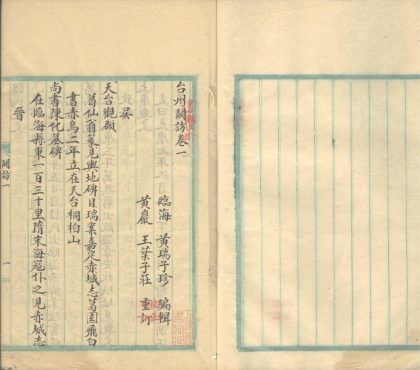 台州闕訪卷一
臨海 黃瑞子珍 編輯
黃巖 王棻子莊 重訂
吳
天台觀額
葛仙翁篆見輿地碑目瑞案嘉定赤城志葛飛白
書赤烏二年立在天台桐柏山
尚書陳化墓碑
在臨海縣東一百三十里隋末海冦仆之見赤城志
晉
闕訪一
一